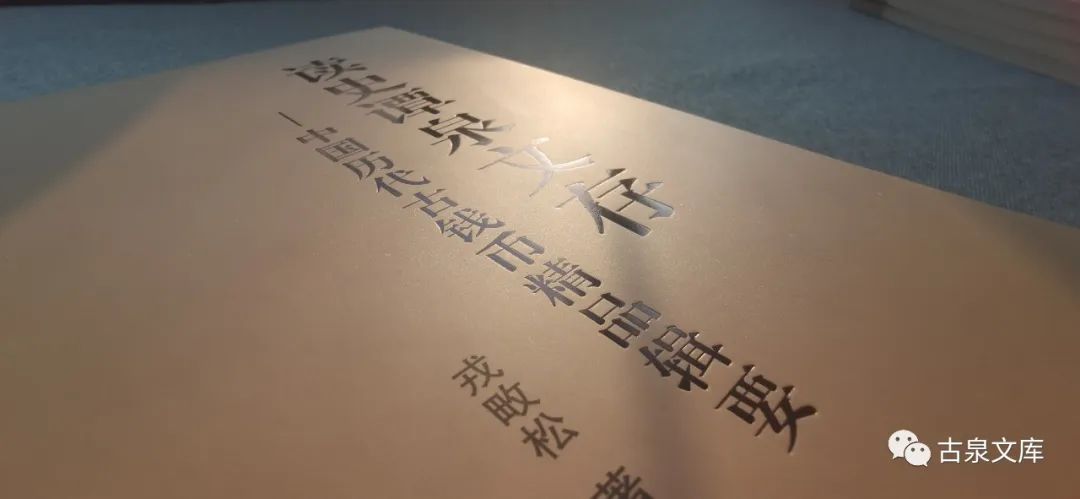 谈史谭泉文存
—中国历代古钱币精品辑要
戎畋松 著
古泉文库